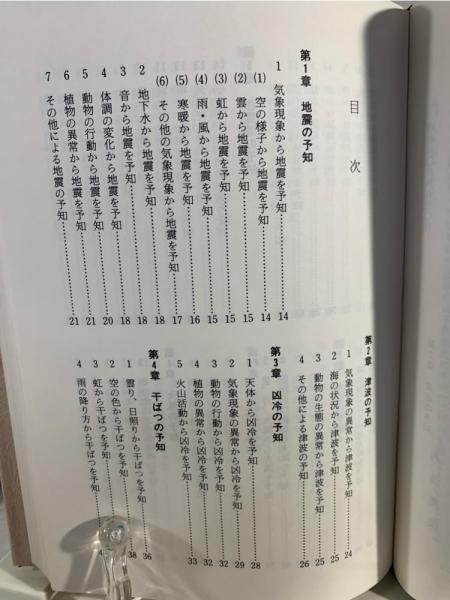 目次
第1章 地震の予知
1 気象現象から地震を予知……14
(1) 空の様子から地震を予知……14
(2) 雲から地震を予知……15
(3) 虹から地震を予知……15
(4) 雨・風から地震を予知……15
(5) 寒暖から地震を予知……16
(6) その他の気象現象から地震を予知……17
2 地下水から地震を予知……18
3 音から地震を予知……18
4 体調の変化から地震を予知……20
5 動物の行動から地震を予知……21
6 植物の異常から地震を予知……21
7 その他による地震の予知……21
第2章 津波の予知
1 気象現象の異常から津波を予知……24
2 海の状況から津波を予知……25
3 動物の生態の異常から津波を予知……25
4 その他による津波の予知……26
第3章 凶冷の予知
1 天体から凶冷を予知……28
2 気象現象の異常から凶冷を予知……29
3 動物の行動から凶冷を予知……32
4 植物の異常から凶冷を予知……32
5 火山活動から凶冷を予知……33
第4章 干ばつの予知
1 曇り、日照りから干ばつを予知……36
2 空の色から干ばつを予知……38
3 虹から干ばつを予知……
4 雨の降り方から干ばつを予知……